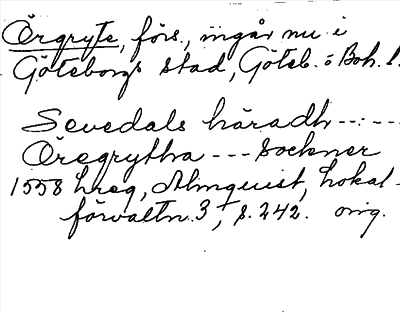 Örgryte, förs., ingår nu i
Göteborgs stad, Göteb. o Boh. l.
Sevedals häradh --:--
Öregrytha --- Sockner
1558 hreg, Almquist, Lokal-
förvaltn. 3, s. 242. orig.